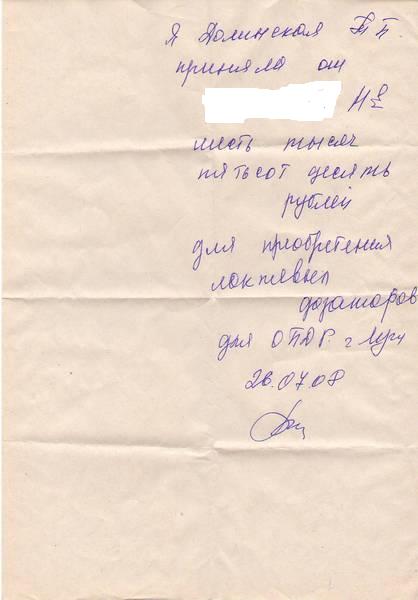 Я Долинская Т П.
приняла от
Н Е
шесть тысяч
пятьсот десять
рублей
для приобретения
локтевых
дозаторов
для ОПДР. г Луги
26.07.08